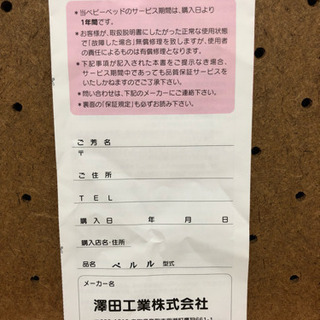 ●当ベビーベッドのサービス期間は、購入日より
1年間です。
●お客様が、取扱説明書にしたがった正常な使用状態
で「故障した場合」無償修理を致しますが、使用者
の責任によるものは有償修理となります。
●下記事項が記入された本書をご提示なき場合、
サービス期間中であっても品質保証サービスを
いたしかねますのでご了承下さい。
●問い合わせは、下記のメーカーにご連絡下さい。
●裏面の「保証規定」も必ずお読み下さい。
ご芳名
〒
ご住所
TEL
購入日 年 月 日
購入店名・住所
品名 ベルル 型式
メーカー名
澤田工業株式会社